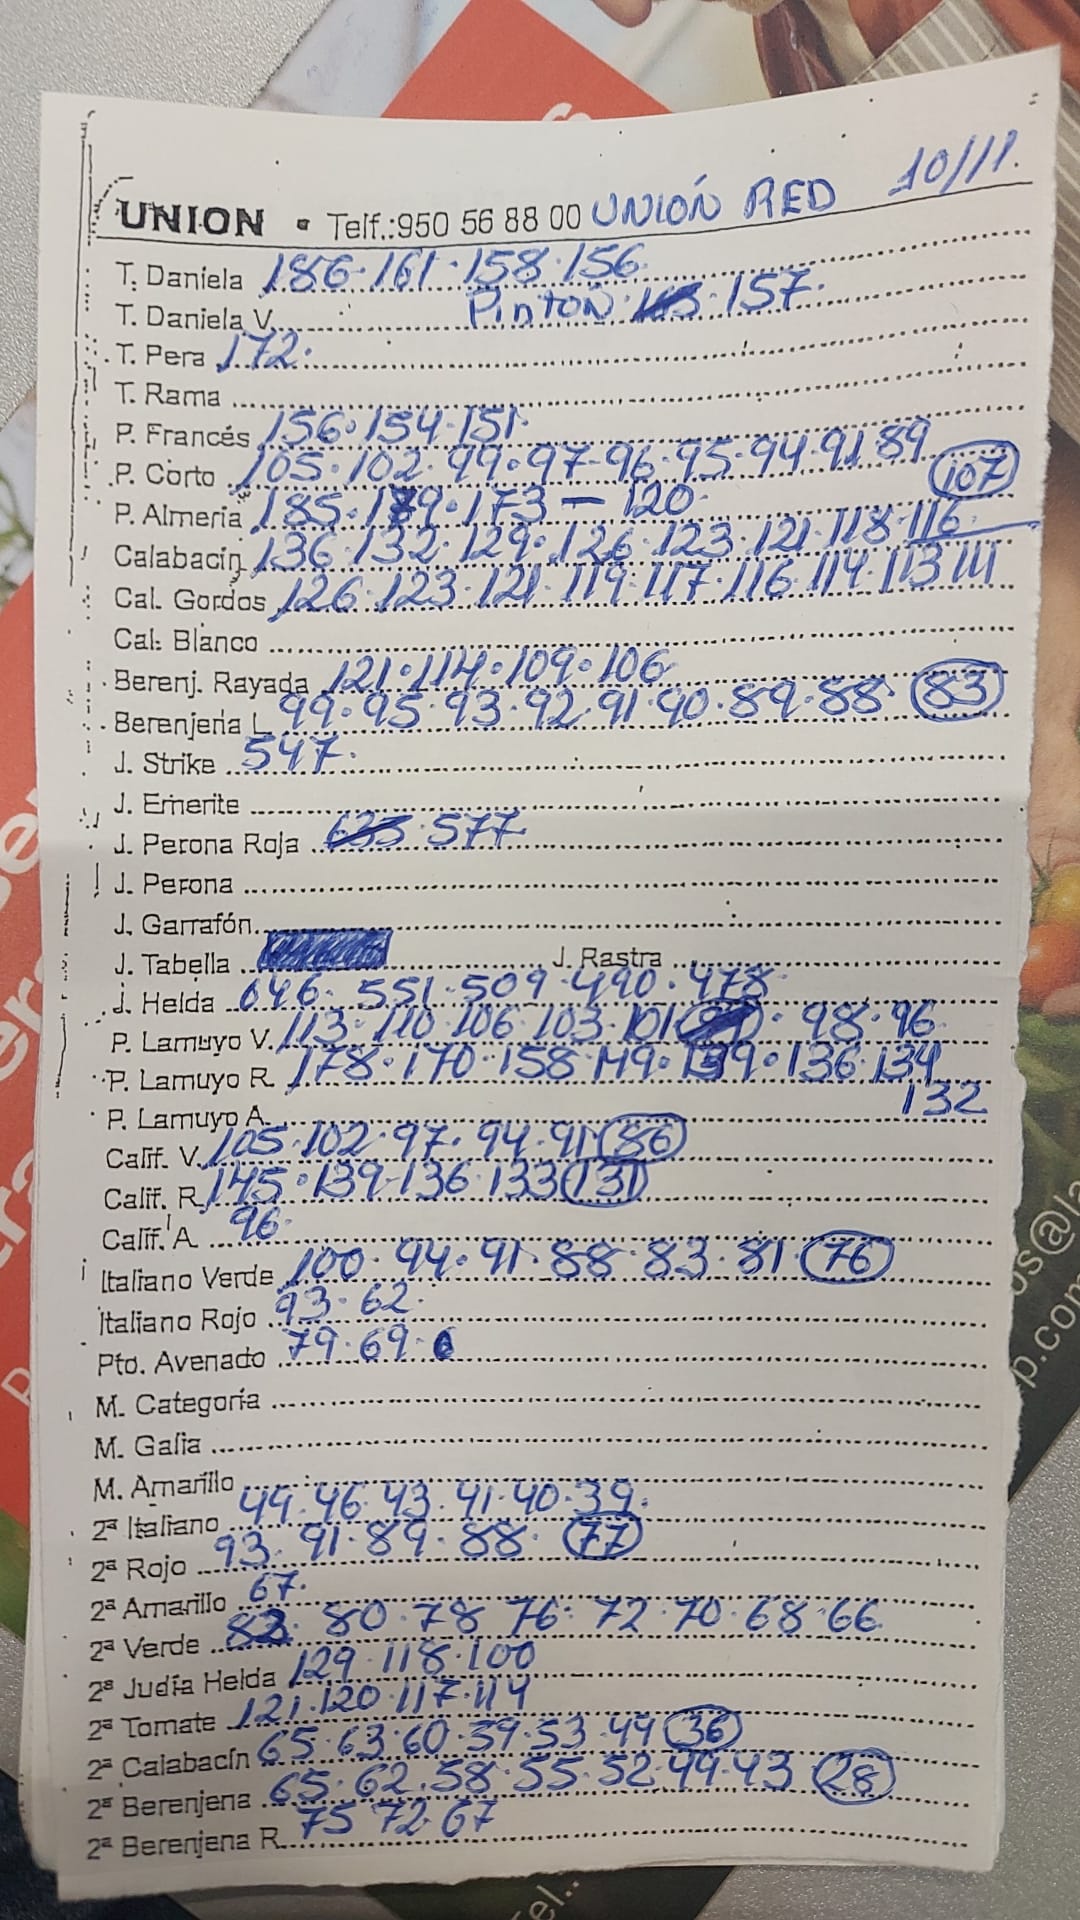 UNION • Telf.:950 56 88 00 UNIÓN RED 10/11.
T. Daniela 186·161·158·156
T. Daniela V. Pintón 157·
T. Pera 172·
T. Rama
P. Francés 156·154·151·
P. Corto 105·102·99·97·96·95·94·91·89
107
P. Almería 185·179·173 — 120·
Calabacín 136·132·129·126·123·121·118·116
Cal. Gordos 126·123·121·119·117·116·114·113·111
Cal. Blanco
Berenj. Rayada 121·114·109·106
Berenjena L. 99·95·93·92·91·90·89·88 83
J. Strike 547·
J. Emerite
J. Perona Roja 577
J. Perona
J. Garrafón
J. Tabella J. Rastra
J. Helda 646· 551·509·490·478·
P. Lamuyo V. 113·110·106·103·101 · 98·96
P. Lamuyo R. 178·170·158·149·139·136·134
132
P. Lamuyo A.
Calif. V. 105·102·97·94·91 86
Calif. R. 145·139·136·133 131
Calif. A 96·
Italiano Verde 100·94·91·88·83·81· 76
Italiano Rojo 93·62·
Pto. Avenado 79·69·
M. Categoría
M. Galia
M. Amarillo
2ª Italiano 49·46·43·41·40·39·
2ª Rojo 93·91·89·88· 77
2ª Amarillo 67·
2ª Verde 80·78·76·72·70·68·66
2ª Judía Helda 129·118·100
2ª Tomate 121·120·117·114
2ª Calabacín 65·63·60·59·53·49 36
2ª Berenjena 65·62·58·55·52·49·43 28
2ª Berenjena R. 75 72·67